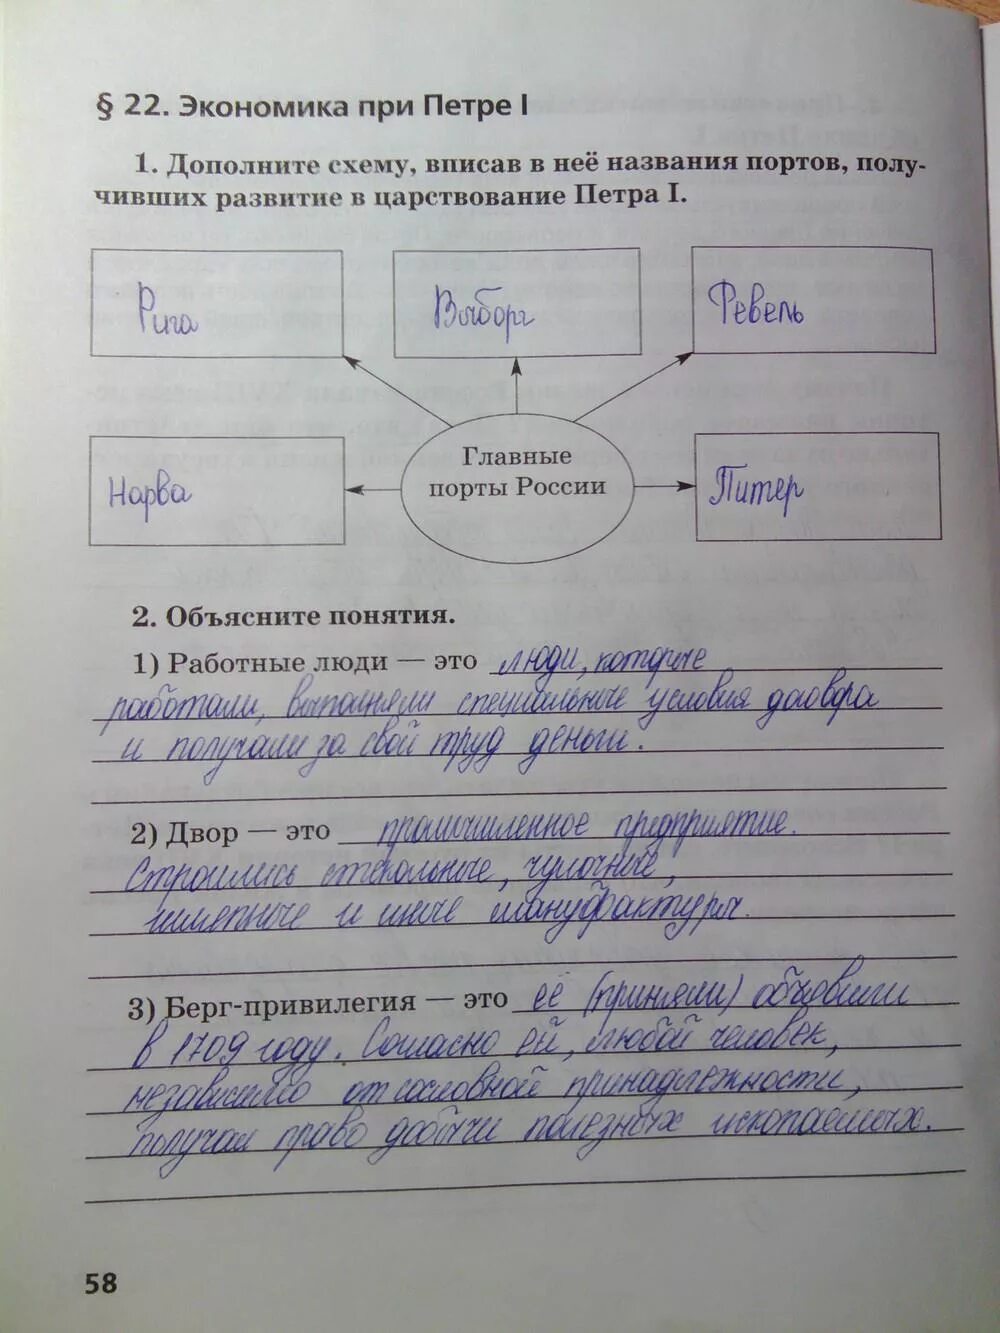 § 22. Экономика при Петре I
1. Дополните схему, вписав в неё названия портов, полу-
чивших развитие в царствование Петра I.
Рига
Выборг
Ревель
Нарва
Главные
порты России
Питер
2. Объясните понятия.
1) Работные люди — это люди, которые
работали, выполняли специальные условия договора
и получали за свой труд деньги.
2) Двор — это промышленное предприятие.
Строились стекольные, чулочные,
шляпные и иные мануфактуры.
3) Берг-привилегия — это её (приняли) объявили
в 1709 году. Согласно ей, любой человек,
независимо от сословной принадлежности,
получал право добычи полезных ископаемых.
58